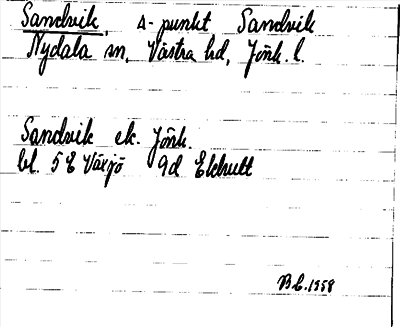 Sandvik, s-punkt Sandvik
Nydala sn, Västra hd, Jönk. l.
Sandvik ek. Jönk.
bl. 5E Växjö 9d Ekhult
B.L. 1958